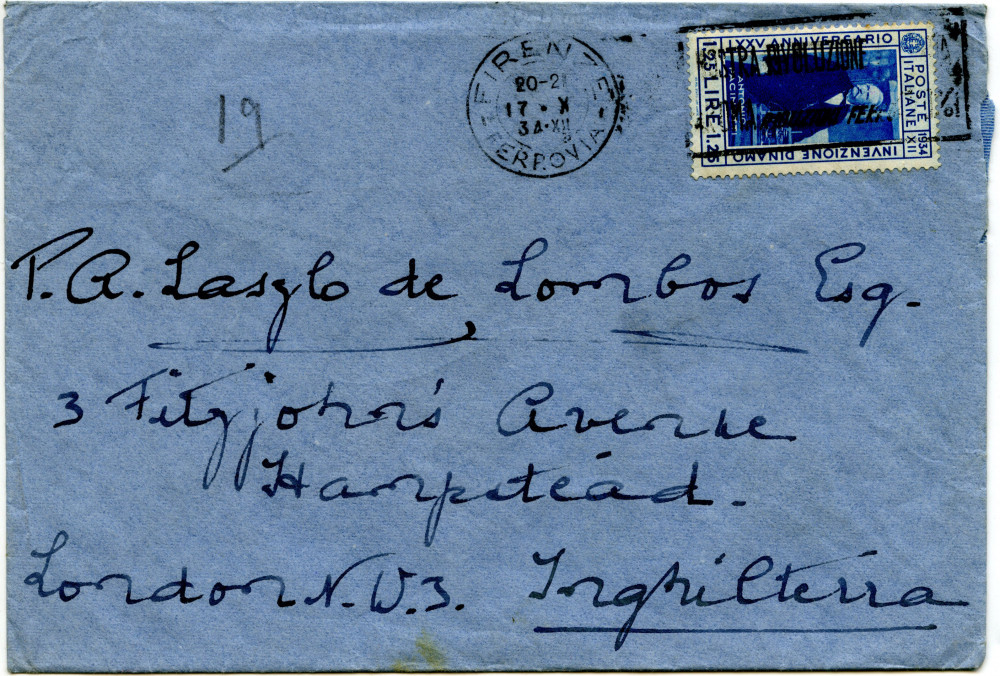 19
FIRENZE
20-21
17 · X
34 · XII
FERROVIA
MOSTRA RIVOLUZIONE
ROMA RIDUZIONI FERR.
LXXV ANNIVERSARIO
INVENZIONE DINAMO
POSTE
ITALIANE
1934 XII
LIRE 1.25
ANTONIO
PACINOTTI
P. A. Laszlo de Lombos Esq.
3 Fitzjohn's Avenue
Hampstead.
London N.W.3. Inghilterra